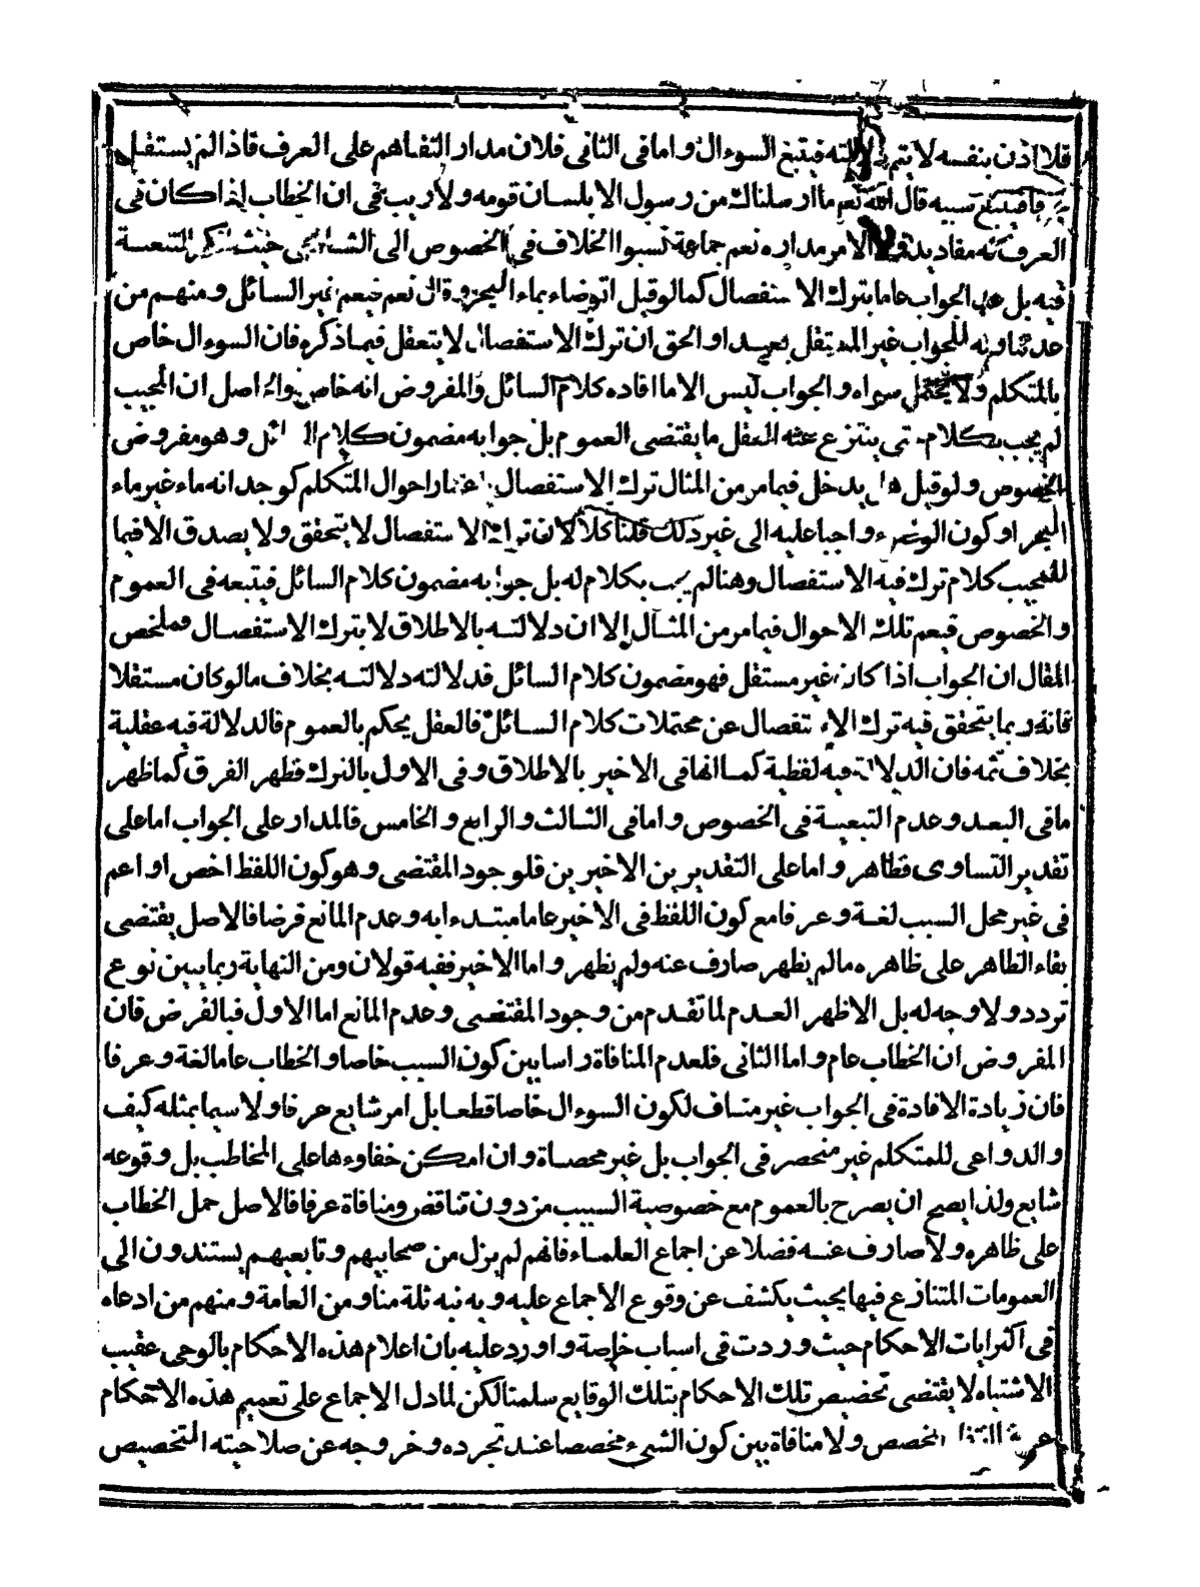 فلا اذن بنفسه لا يتم دلالته فيتبع السوءال واما فى الثانى فلان مدار التفاهم على العرف فاذا لم يستقل
فيتبع سببه قال الله تعم ما ارسلناك من رسول الا بلسان قومه ولا ريب فى ان الخطاب اذا كان فى
العرف مفاد الامر مداره نعم جماعة نسبوا الخلاف فى الخصوص الى الشافعى حيث انكر التبعية
فيه بل الجواب عاما بترك الاستفصال كما لو قيل اتوضاء بماء البحر فقال نعم فيعم غير السائل ومنهم من
عد تناوله للجواب غير المستقل بعيدا والحق ان ترك الاستفصال لا يتعقل فيما ذكره فان السوءال خاص
بالمتكلم ولا يحتمل سواه والجواب ليس الا ما افاده كلام السائل والمفروض انه خاص والحاصل ان المجيب
لم يجب بكلام حتى ينتزع عنه العقل ما يقتضى العموم بل جوابه مضمون كلام السائل وهو مفروض
الخصوص ولو قيل هل يدخل فيما مر من المثال ترك الاستفصال باعتبار احوال المتكلم كوجدانه ماء غير ماء
البحر او كون الوضوء واجبا عليه الى غير ذلك قلنا كلا لان ترك الاستفصال لا يتحقق ولا يصدق الا فيما
للمجيب كلام ترك فيه الاستفصال وهنا لم يجب بكلام له بل جوابه مضمون كلام السائل فيتبعه فى العموم
والخصوص فيعم تلك الاحوال فيما مر من المثال الا ان دلالته بالاطلاق لا بترك الاستفصال فملخص
المقال ان الجواب اذا كان غير مستقل فهو مضمون كلام السائل فدلالته دلالته بخلاف ما لو كان مستقلا
فانه ربما يتحقق فيه ترك الاستفصال عن محتملات كلام السائل فالعقل يحكم بالعموم فالدلالة فيه عقلية
بخلاف ثمه فان الدلالة فيه لفظية كما انها فى الاخير بالاطلاق وفى الاول بالترك فظهر الفرق كما ظهر
ما فى البعد وعدم التبعية فى الخصوص واما فى الثالث والرابع والخامس فالمدار على الجواب اما على
تقدير التساوى فظاهر واما على التقديرين الاخيرين فلوجود المقتضى وهو كون اللفظ اخص او اعم
فى غير محل السبب لغة وعرفا مع كون اللفظ فى الاخير عاما مبتدءا به وعدم المانع فرضا فالاصل يقتضى
بقاء الظاهر على ظاهره ما لم يظهر صارف عنه ولم يظهر واما الاخير ففيه قولان ومن النهاية ربما يبين نوع
تردد ولا وجه له بل الاظهر العدم لما تقدم من وجود المقتضى وعدم المانع اما الاول فبالفرض فان
المفروض ان الخطاب عام واما الثانى فلعدم المنافاة راسا بين كون السبب خاصا والخطاب عاما لغة وعرفا
فان زيادة الافادة فى الجواب غير مناف لكون السوءال خاصا قطعا بل امر شايع عرفا ولا سيما بمثله كيف
والدواعى للمتكلم غير منحصر فى الجواب بل غير محصاة وان امكن خفاوءها على المخاطب بل وقوعه
شايع ولذا يصح ان يصرح بالعموم مع خصوصية السبب من دون تناقض ومنافاة عرفا فالاصل حمل الخطاب
على ظاهره ولا صارف عنه فضلا عن اجماع العلماء فانهم لم يزل من صحابيهم وتابعيهم يستندون الى
العمومات المتنازع فيها بحيث يكشف عن وقوع الاجماع عليه وبه نبه ثلة منا ومن العامة ومنهم من ادعاه
فى اكثر ايات الاحكام حيث وردت فى اسباب خاصة واورد عليه بان اعلام هذه الاحكام بالوحى عقيب
الاشتباه لا يقتضى تخصيص تلك الاحكام بتلك الوقايع سلمنا لكن لما دل الاجماع على تعميم هذه الاحكام
المخصص ولا منافاة بين كون الشىء مخصصا عند تجرده وخروجه عن صلاحيته التخصيص